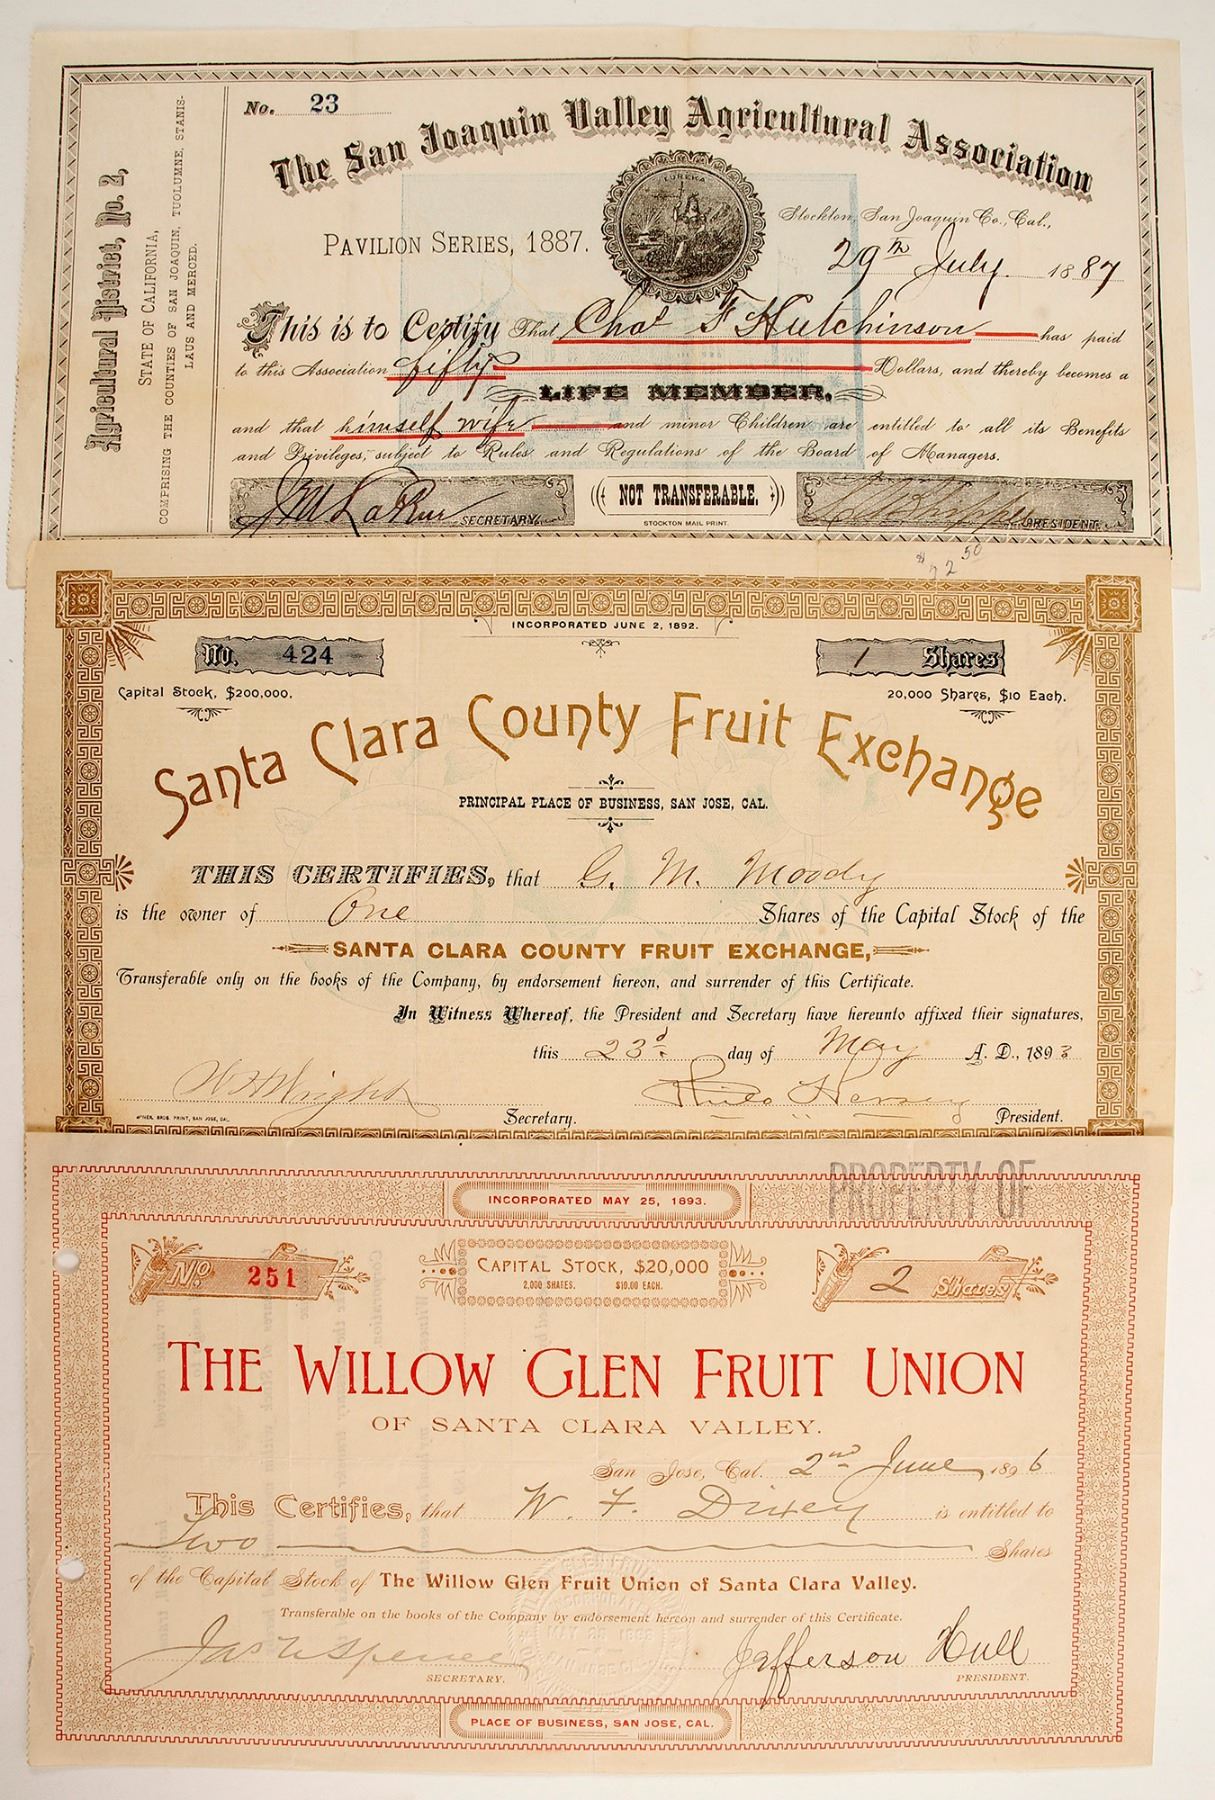 Agricultural District, No. 2,
STATE OF CALIFORNIA,
COMPRISING THE COUNTIES OF SAN JOAQUIN, TUOLUMNE, STANIS-
LAUS AND MERCED.
No. 23
The San Joaquin Valley Agricultural Association
EUREKA
Stockton, San Joaquin Co., Cal.,
PAVILION SERIES, 1887.
29th July. 1887
This is to Certify That Chas F Hutchinson has paid
to this Association fifty Dollars, and thereby becomes a
LIFE MEMBER,
and that himself wife and minor Children are entitled to all its Benefits
and Privileges, subject to Rules and Regulations of the Board of Managers.
J M LaRue SECRETARY. NOT TRANSFERABLE. PRESIDENT.
STOCKTON MAIL PRINT.
$ 2 50
INCORPORATED JUNE 2, 1892.
No. 424 1 Shares
Capital Stock, $200,000. 20,000 Shares, $10 Each.
Santa Clara County Fruit Exchange
PRINCIPAL PLACE OF BUSINESS, SAN JOSE, CAL.
THIS CERTIFIES, that G. M. Moody
is the owner of One Shares of the Capital Stock of the
SANTA CLARA COUNTY FRUIT EXCHANGE,
Transferable only on the books of the Company, by endorsement hereon, and surrender of this Certificate.
In Witness Whereof, the President and Secretary have hereunto affixed their signatures,
this 23d. day of May A. D., 1893
W H Wright Secretary. Philo Hersey President.
BROS. PRINT, SAN JOSE, CAL.
PROPERTY OF
INCORPORATED MAY 25, 1893.
No. 251 CAPITAL STOCK, $20,000 2 Shares
2,000 SHARES. $10.00 EACH.
THE WILLOW GLEN FRUIT UNION
OF SANTA CLARA VALLEY.
San Jose, Cal. 2nd June 1896
This Certifies, that W. F. Dixey is entitled to
Two Shares
of the Capital Stock of The Willow Glen Fruit Union of Santa Clara Valley.
Transferable on the books of the Company by endorsement hereon and surrender of this Certificate.
GLEN FRUIT
INCORPORATED
MAY 25 1893
SAN JOSE CAL
Jas W Spencer Jefferson Hull
SECRETARY. PRESIDENT.
PLACE OF BUSINESS, SAN JOSE, CAL.